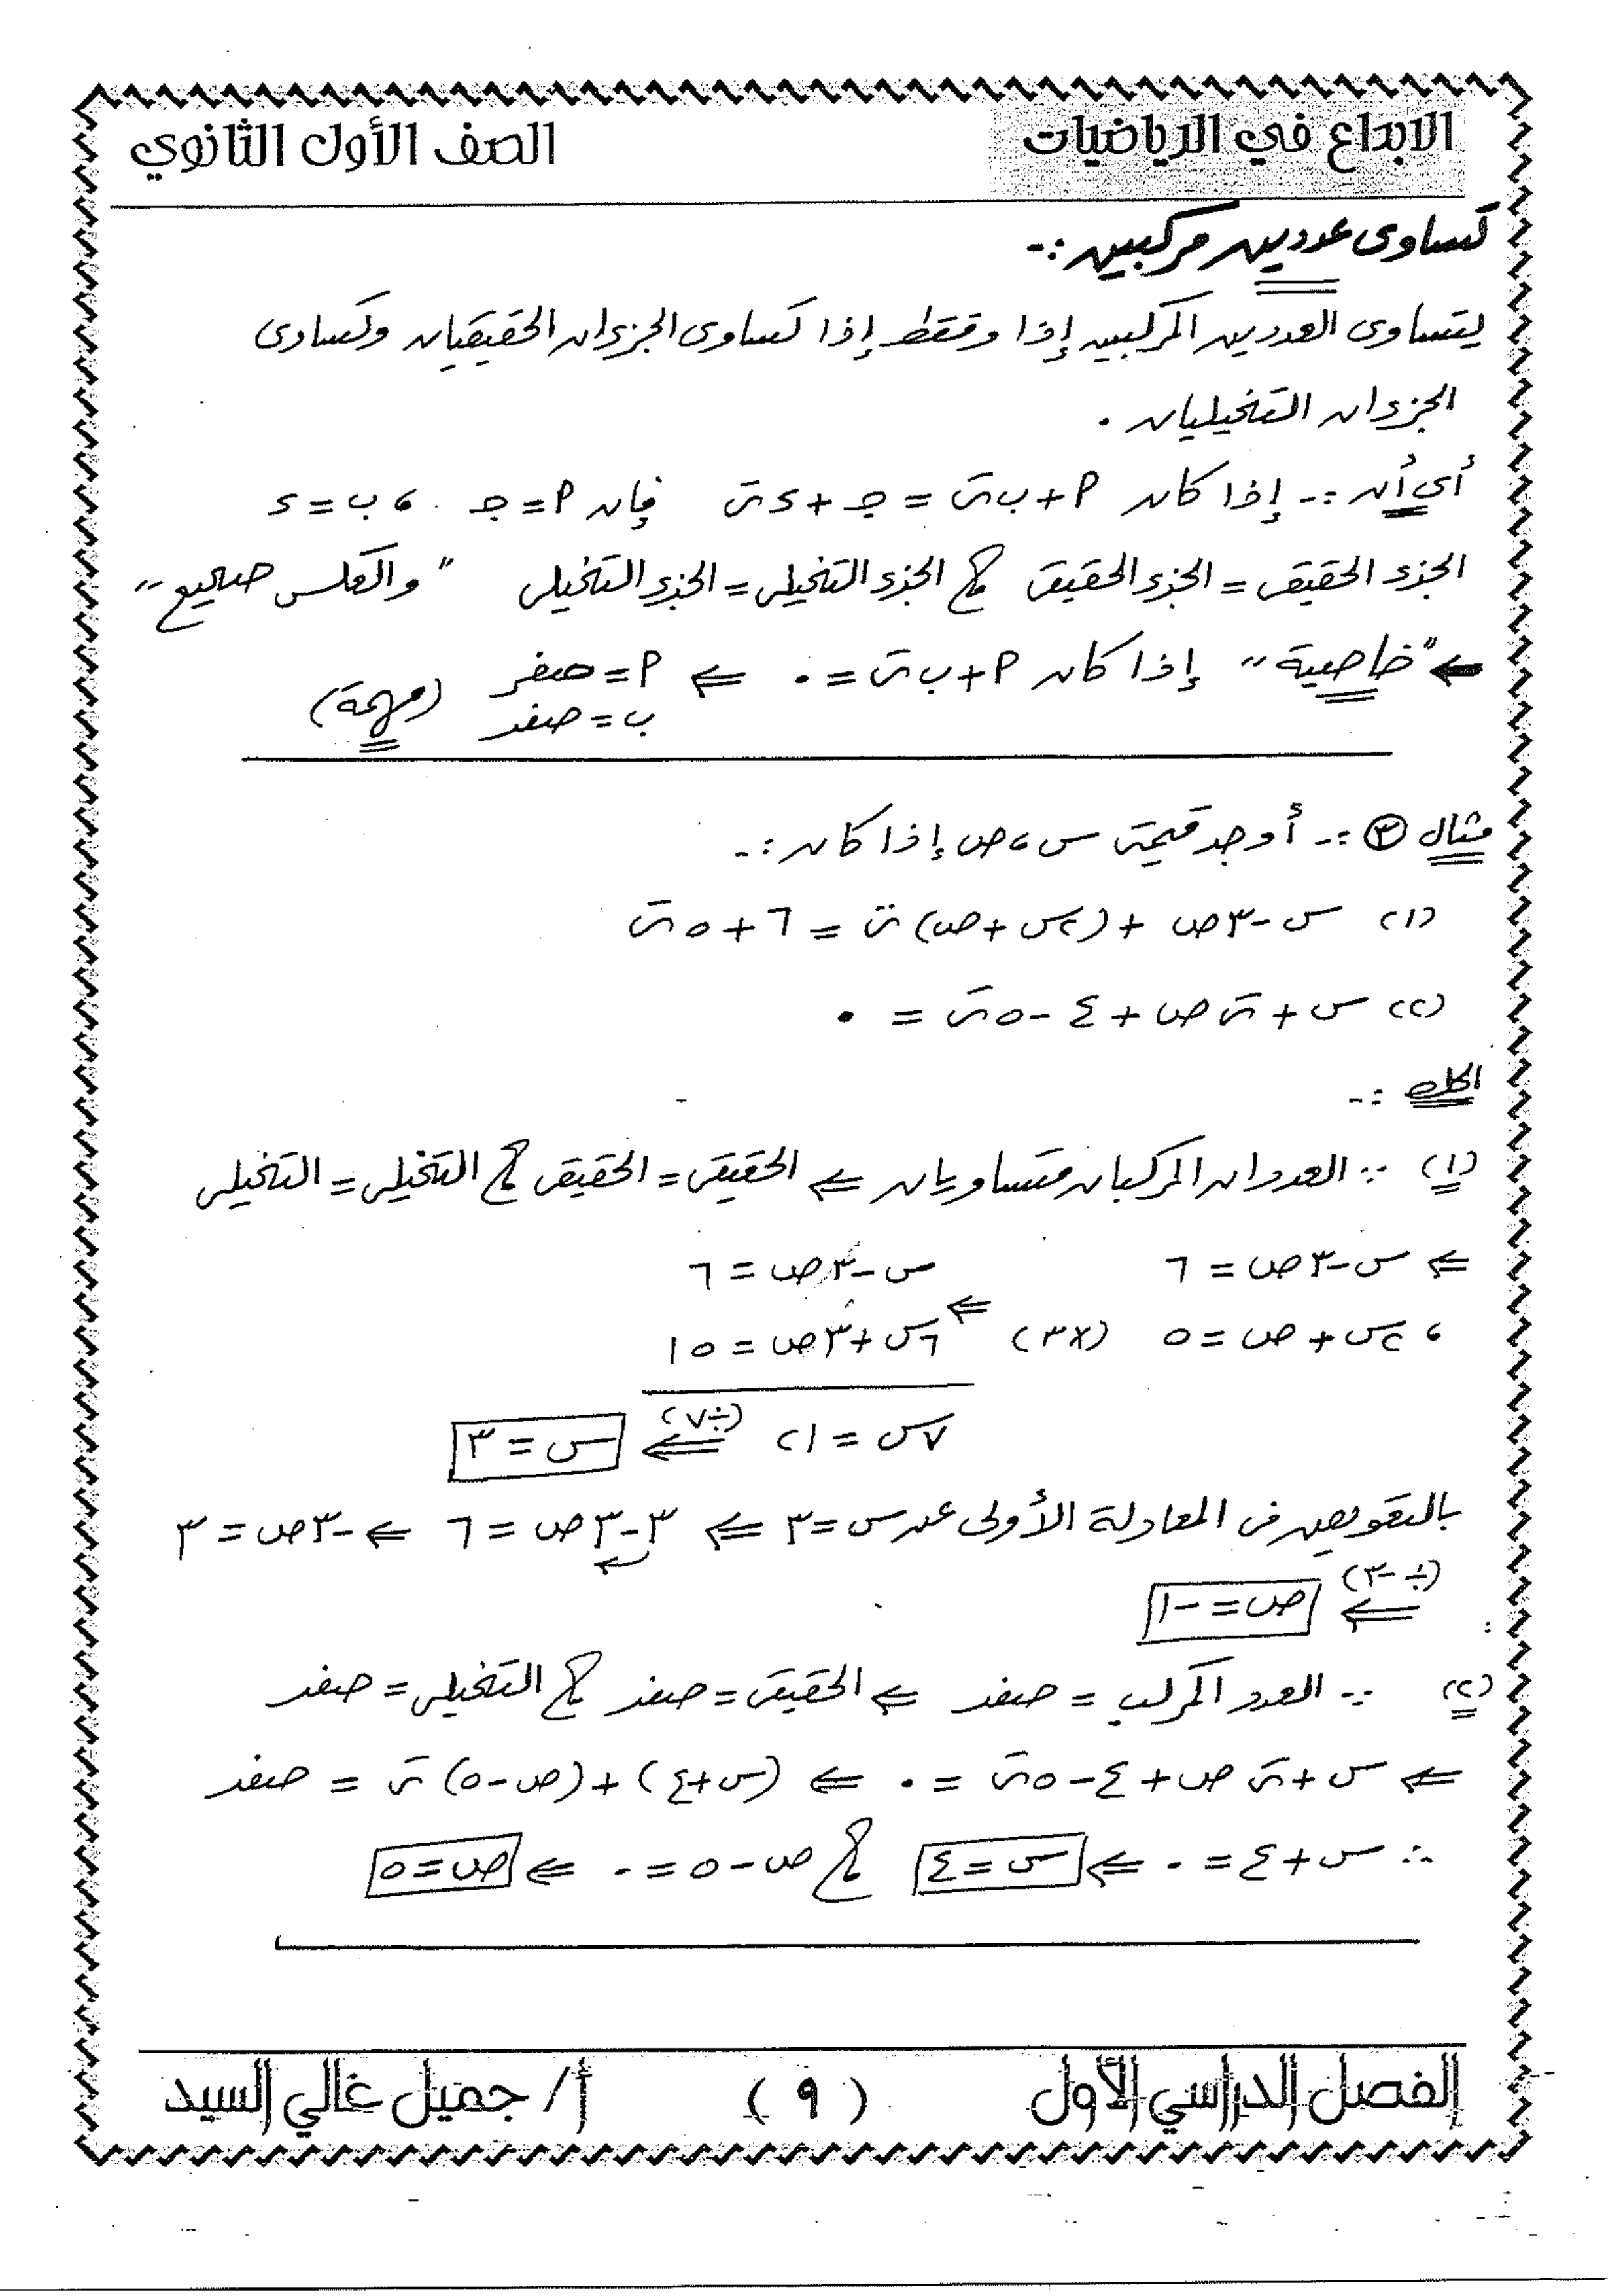 الابداع في الرياضيات
الصف الأول الثانوي
تساوى عددين مركبين :-
يتساوى العددين المركبين إذا وفقط إذا تساوى الجزءان الحقيقيان وتساوى
الجزءان التخيليان .
أي أن :- إذا كان أ + ب ت = جـ + د ت فإن أ = جـ ، ب = د
الجزء الحقيقى = الجزء الحقيقى ، الجزء التخيلى = الجزء التخيلى " والعكس صحيح "
← " خاصية " إذا كان أ + ب ت = ٠ ⇐ أ = صفر
ب = صفر (مهمة)
مثال ③ :- أوجد قيمتى س ، ص إذا كان :-
(١) س - ٣ص + (٢س + ص) ت = ٦ + ٥ ت
(٢) س + ت ص + ٤ - ٥ ت = ٠
الحل :-
(١) ∵ العددان المركبان متساويان ⇐ الحقيقى = الحقيقى ، التخيلى = التخيلى
⇐ س - ٣ص = ٦ س - ٣ص = ٦
، ٢س + ص = ٥ (×٣) ⇐ ٦س + ٣ص = ١٥
٧س = ٢١ (÷٧) ⇐ س = ٣
بالتعويض فى المعادلة الأولى عن س = ٣ ⇐ ٣ - ٣ص = ٦ ⇐ -٣ص = ٣
(÷ -٣) ⇐ ص = -١
(٢) ∵ العدد المركب = صفر ⇐ الحقيقى = صفر ، التخيلى = صفر
⇐ س + ت ص + ٤ - ٥ ت = ٠ ⇐ (س + ٤) + (ص - ٥) ت = صفر
∴ س + ٤ = ٠ ⇐ س = ٤ ، ص - ٥ = ٠ ⇐ ص = ٥
الفصل الدراسي الأول
( ٩ )
أ/ جميل غالي السيد